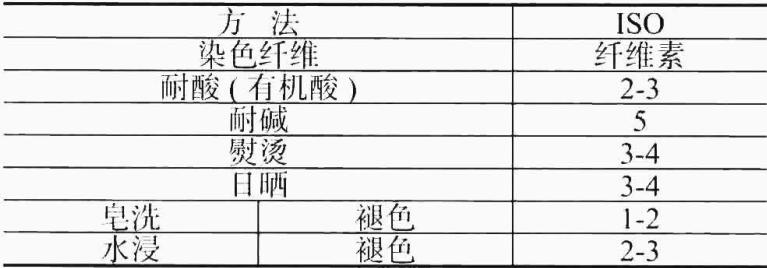 方 法 ISO
染色纤维 纤维素
耐酸(有机酸) 2-3
耐碱 5
熨烫 3-4
日晒 3-4
皂洗 褪色 1-2
水浸 褪色 2-3